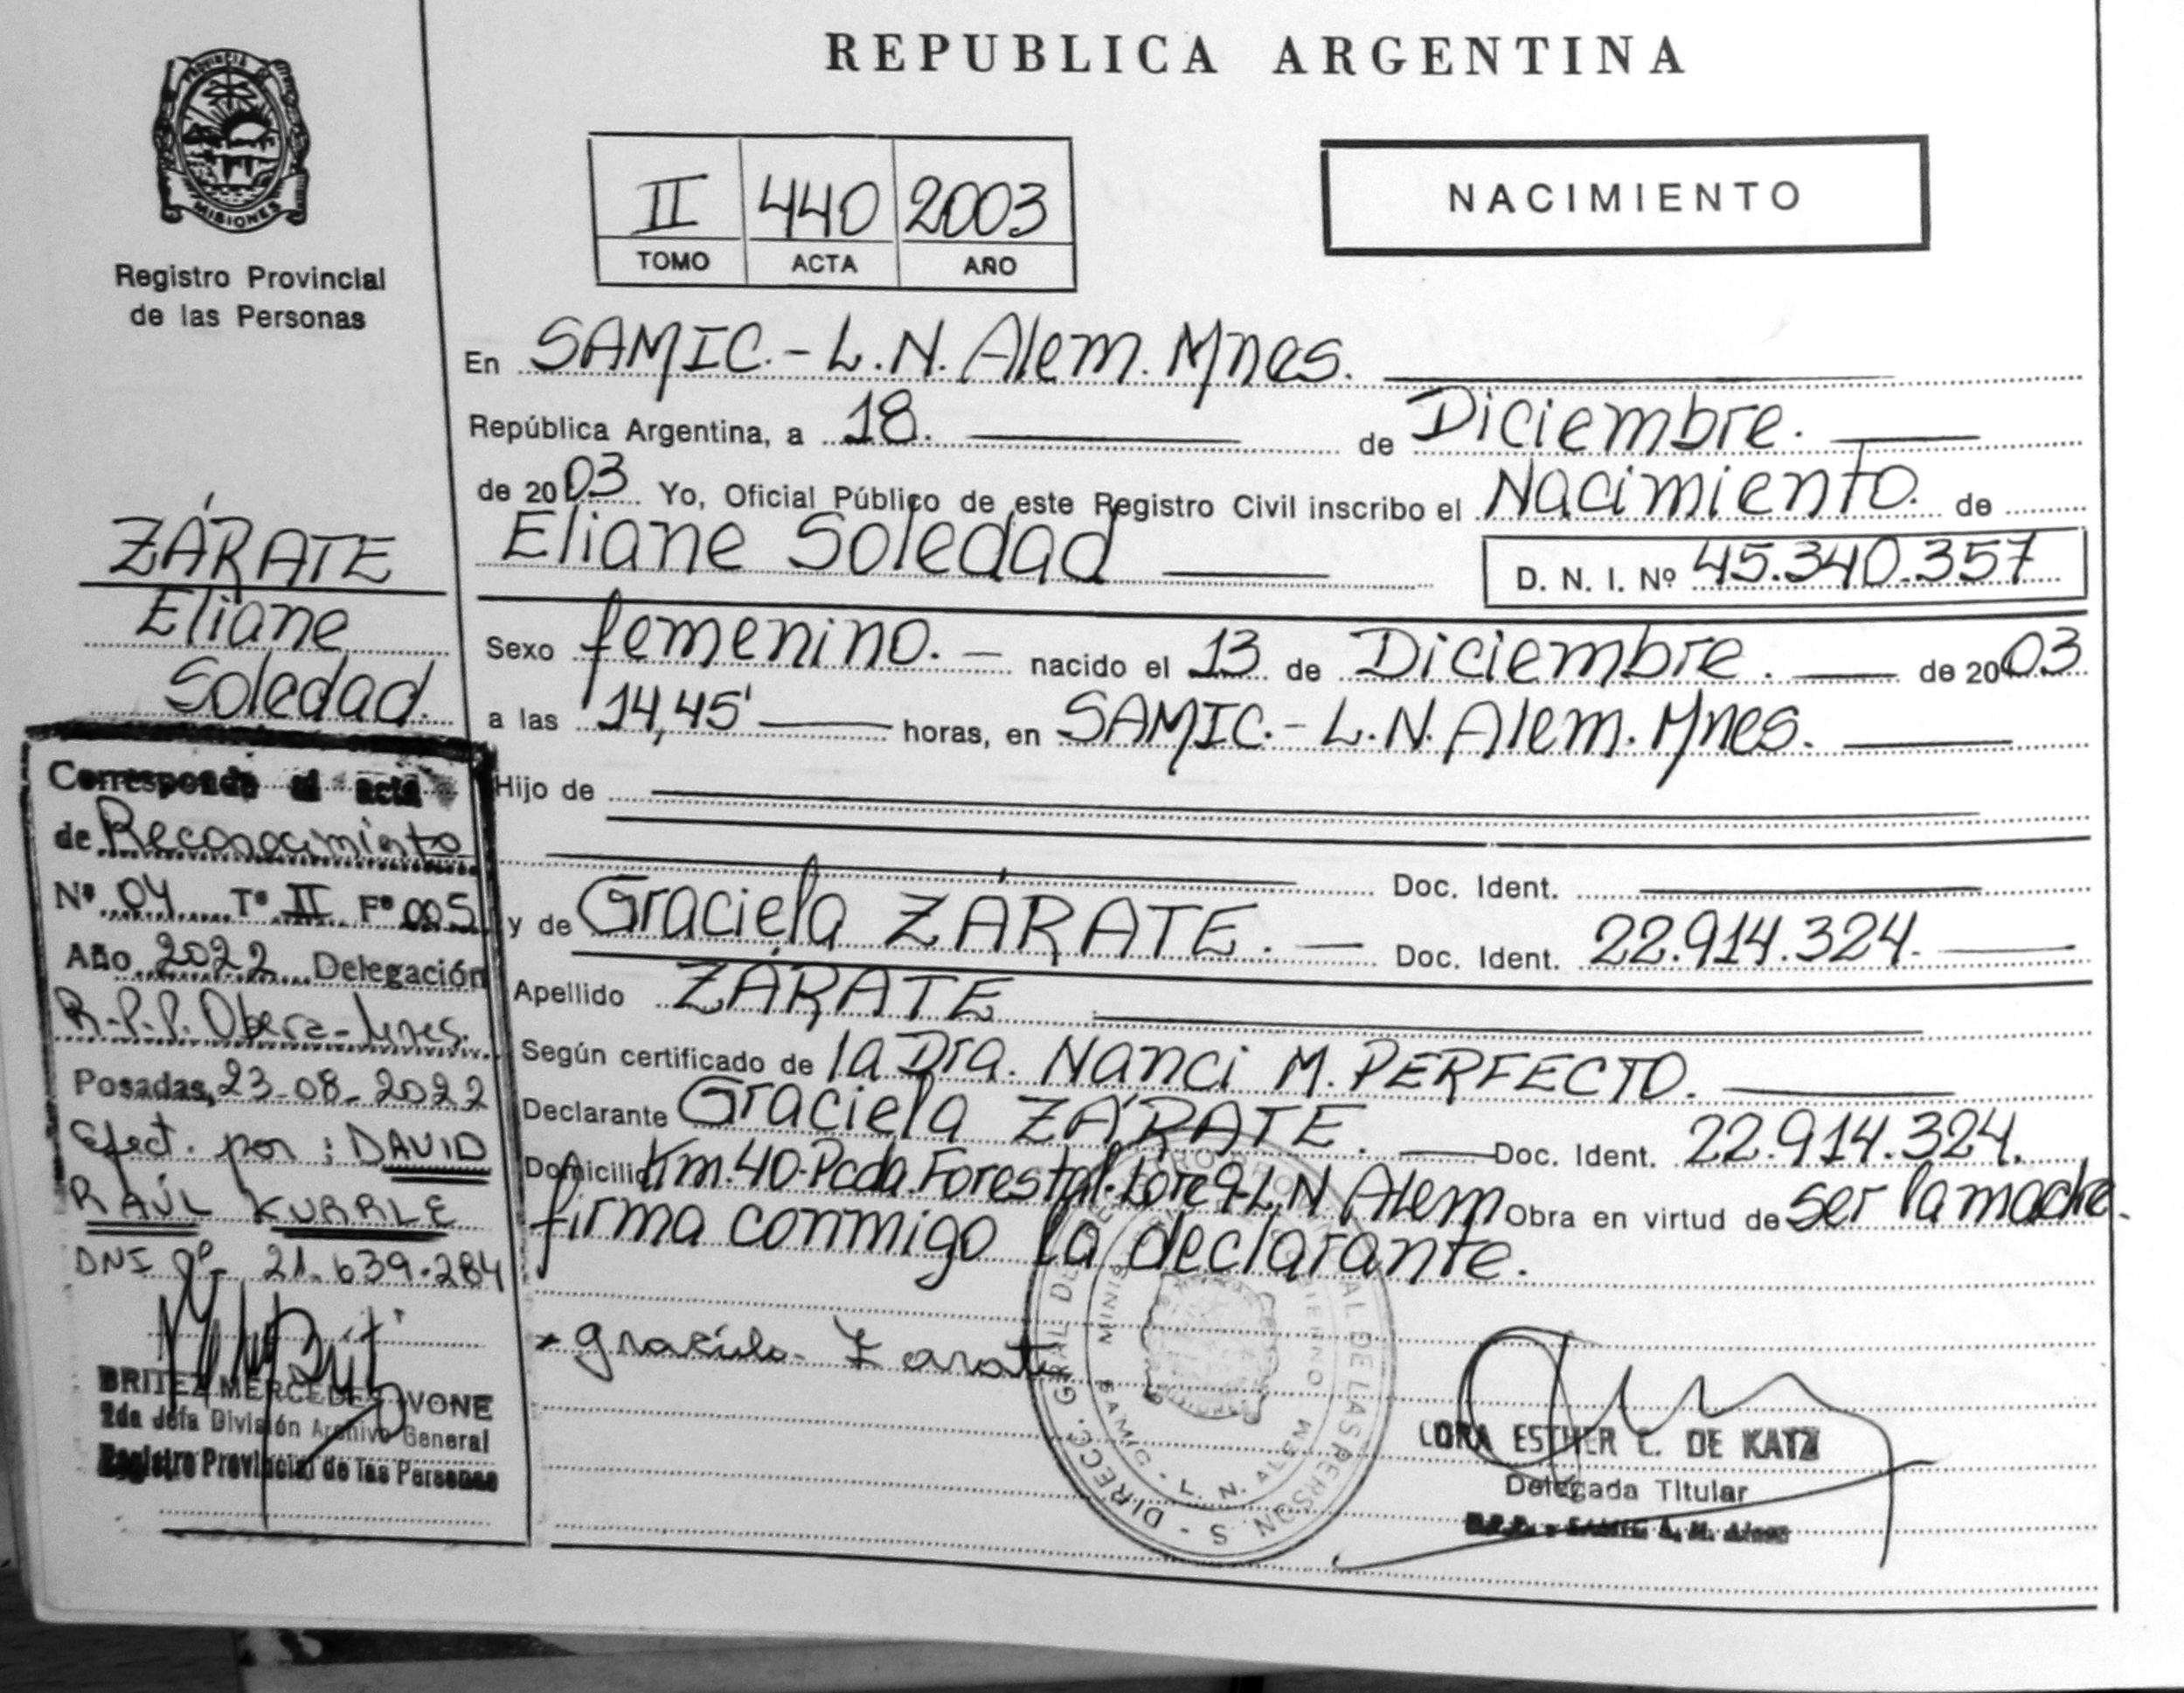 REPUBLICA ARGENTINA
PROVINCIA DE
MISIONES
Registro Provincial
de las Personas
II 440 2003
TOMO ACTA AÑO
NACIMIENTO
En SAMIC.- L.N. Alem. Mnes.
República Argentina, a 18. de Diciembre.
de 2003 Yo, Oficial Público de este Registro Civil inscribo el Nacimiento. de
Eliane Soledad D. N. I. Nº 45.340.357
Sexo femenino. nacido el 13 de Diciembre. de 2003
a las 14,45' horas, en SAMIC.- L.N. Alem. Mnes.
Hijo de
Doc. Ident.
y de Graciela ZÁRATE. Doc. Ident. 22.914.324.
Apellido ZÁRATE
Según certificado de la Dra. Nanci M. PERFECTO.
Declarante Graciela ZÁRATE. Doc. Ident. 22.914.324.
Domicilio Km.40-Pcda.Forestal-Lote 9-L.N Alem Obra en virtud de ser la madre.
firma conmigo la declarante.
Graciela Zarate
CORA ESTHER C. DE KATZ
Delegada Titular
DIREC. GRAL DE LAS PERSON
SAMIC - L. N. ALEM
ZÁRATE
Eliane
Soledad.
Corresponde al acta
de Reconocimiento
Nº 04 Tº II Fº 005
Año 2022 Delegación
R.P.P. Obera-Mnes.
Posadas, 23-08-2022
Efect. por : DAVID
RAÚL KURRLE
DNI nº 21.639.284
BRITEZ MERCEDES IVONE
2da Jefa División Archivo General
Registro Provincial de las Personas